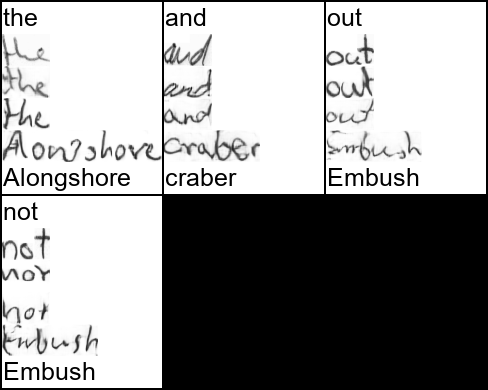 the
the
the
the
Alongshore
Alongshore
and
and
and
and
craber
craber
out
out
out
out
Embush
Embush
not
not
nor
not
Embush
Embush